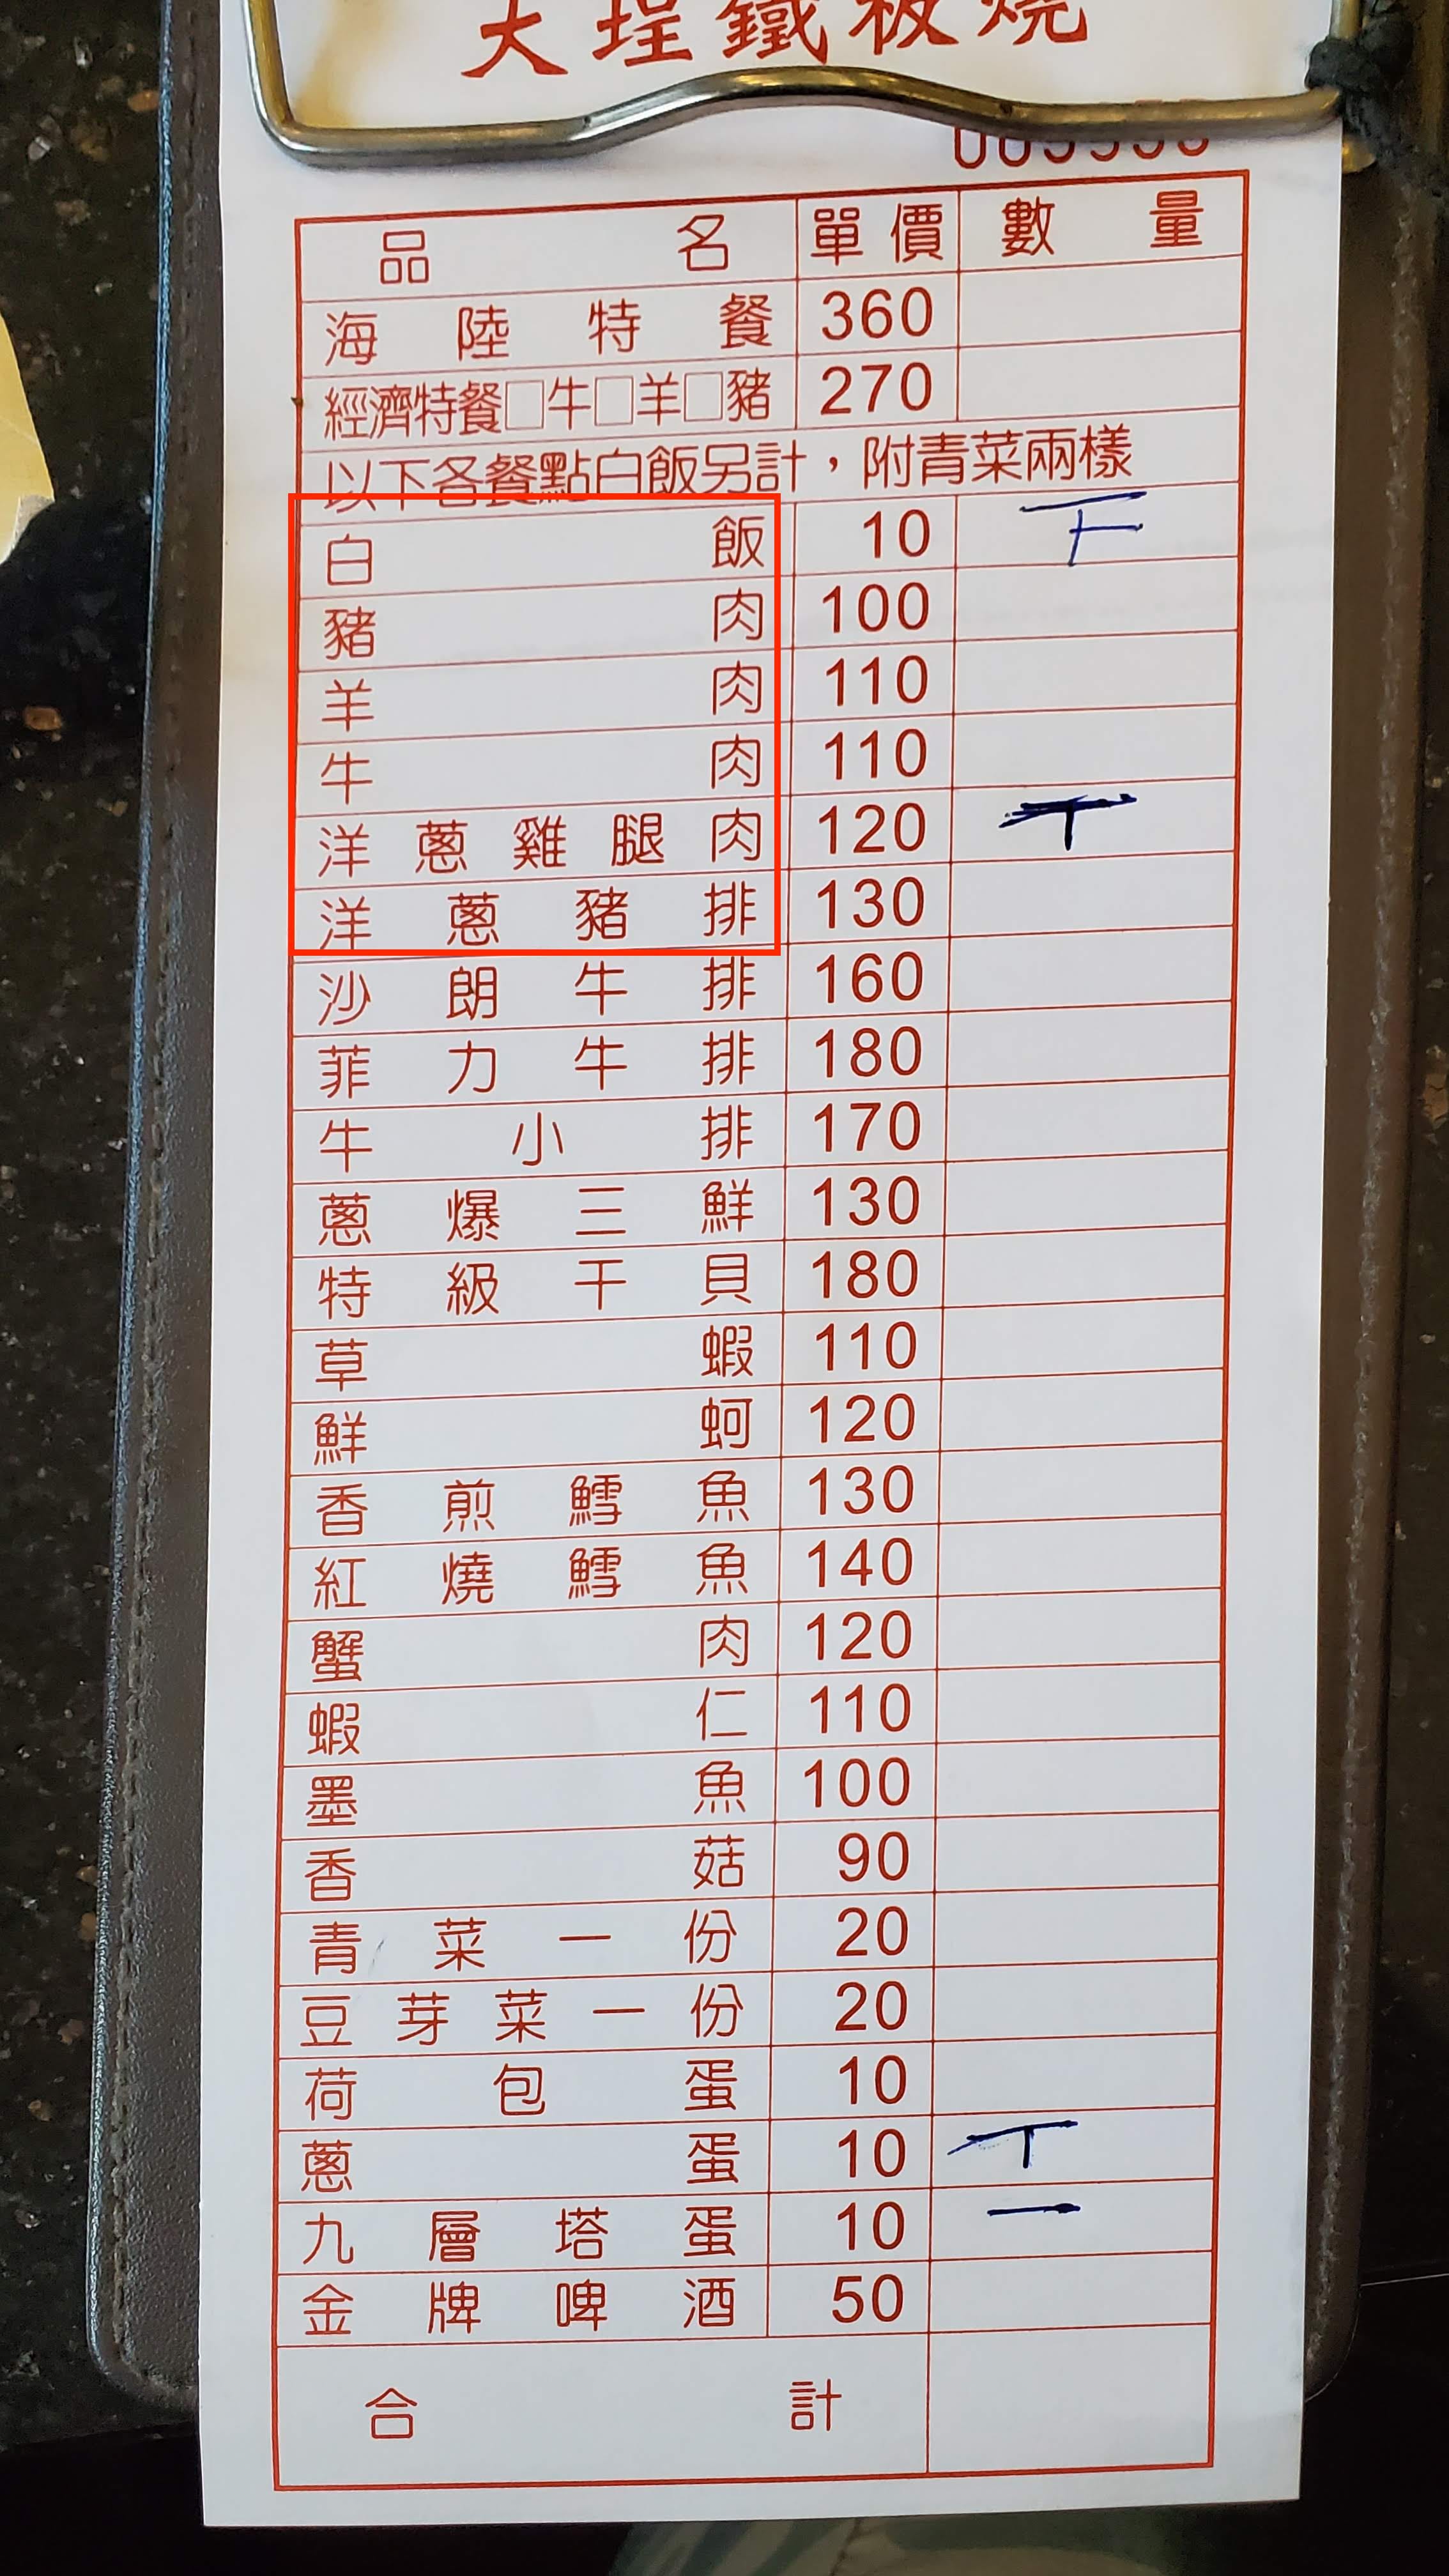 大埕鐵板燒
品名 單價 數量
海陸特餐 360
經濟特餐□牛□羊□豬 270
以下各餐點白飯另計，附青菜兩樣
白飯 10
豬肉 100
羊肉 110
牛肉 110
洋蔥雞腿肉 120
洋蔥豬排 130
沙朗牛排 160
菲力牛排 180
牛小排 170
蔥爆三鮮 130
特級干貝 180
草蝦 110
鮮蚵 120
香煎鱈魚 130
紅燒鱈魚 140
蟹肉 120
蝦仁 110
墨魚 100
香菇 90
青菜一份 20
豆芽菜一份 20
荷包蛋 10
蔥蛋 10
九層塔蛋 10
金牌啤酒 50
合計